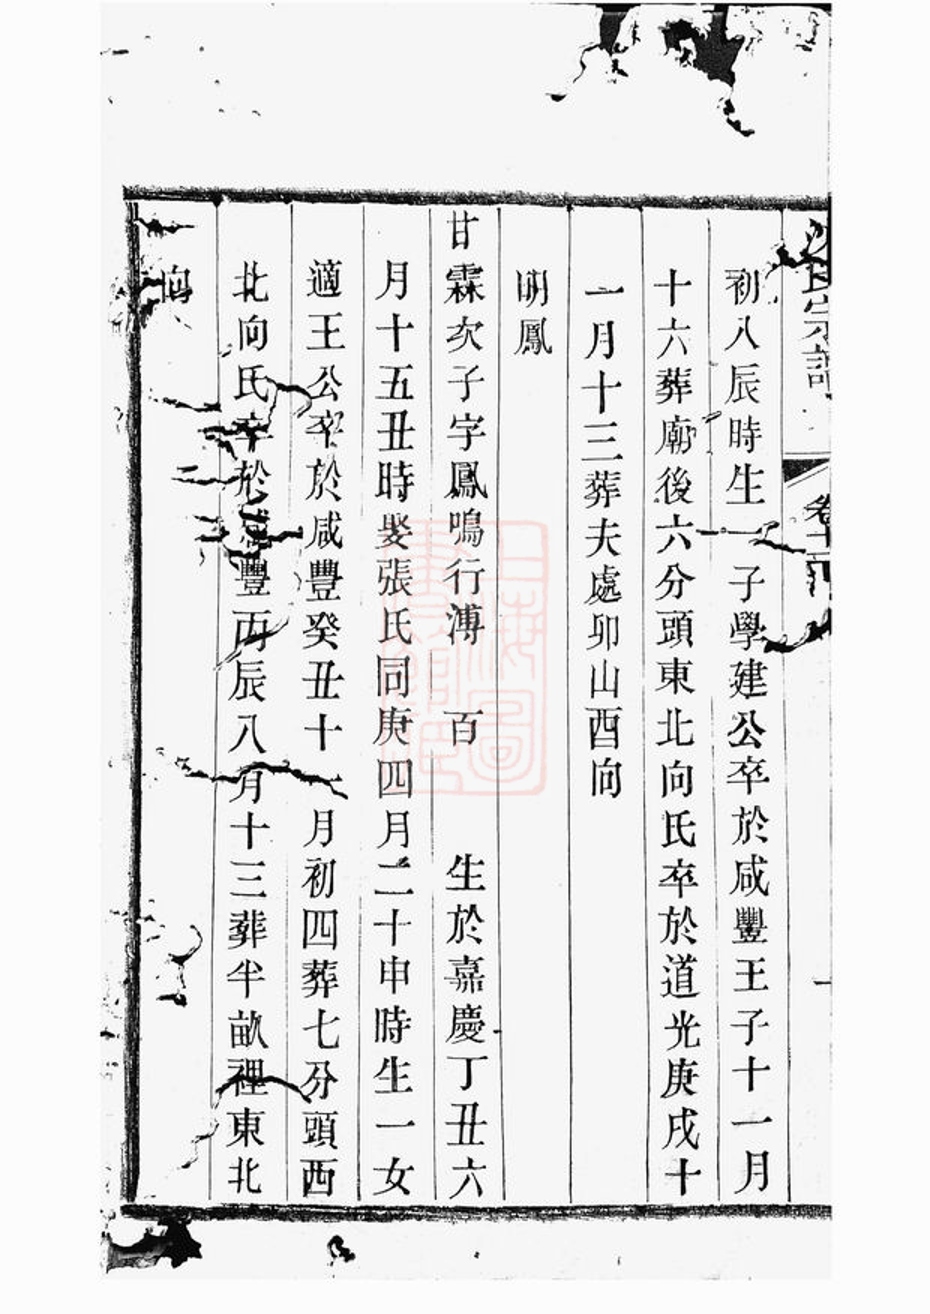 氏宗譜
卷十四
初八辰時生一子學建公卒於咸豐王子十一月
十六葬廟後六分頭東北向氏卒於道光庚戌十
一月十三葬夫處卯山酉向
明鳳
甘霖次子字鳳鳴行溥 百 生於嘉慶丁丑六
月十五丑時娶張氏同庚四月二十申時生一女
適王公卒於咸豐癸丑十一月初四葬七分頭西
北向氏卒於咸豐丙辰八月十三葬半畝裡東北
向